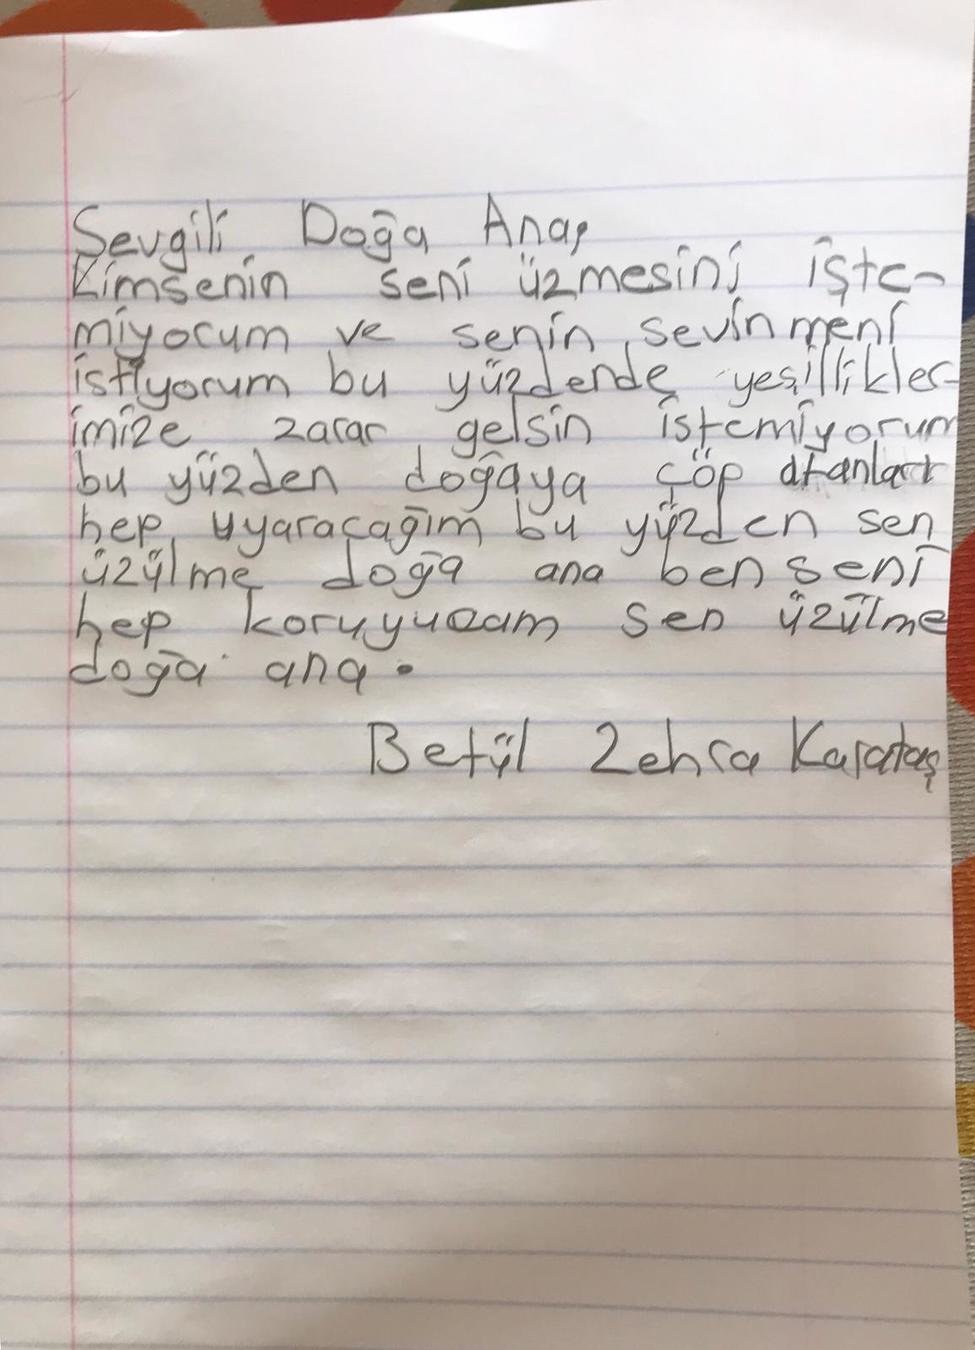 Sevgili Doğa Ana,
Kimsenin seni üzmesini iste-
miyorum ve senin sevinmeni
istiyorum bu yüzdende yeşillikler-
imize zarar gelsin istemiyorum
bu yüzden doğaya çöp atanları
hep uyaracağım bu yüzden sen
üzülme doğa ana ben seni
hep koruyucam sen üzülme
doğa ana.
Betül Zehra Karataş